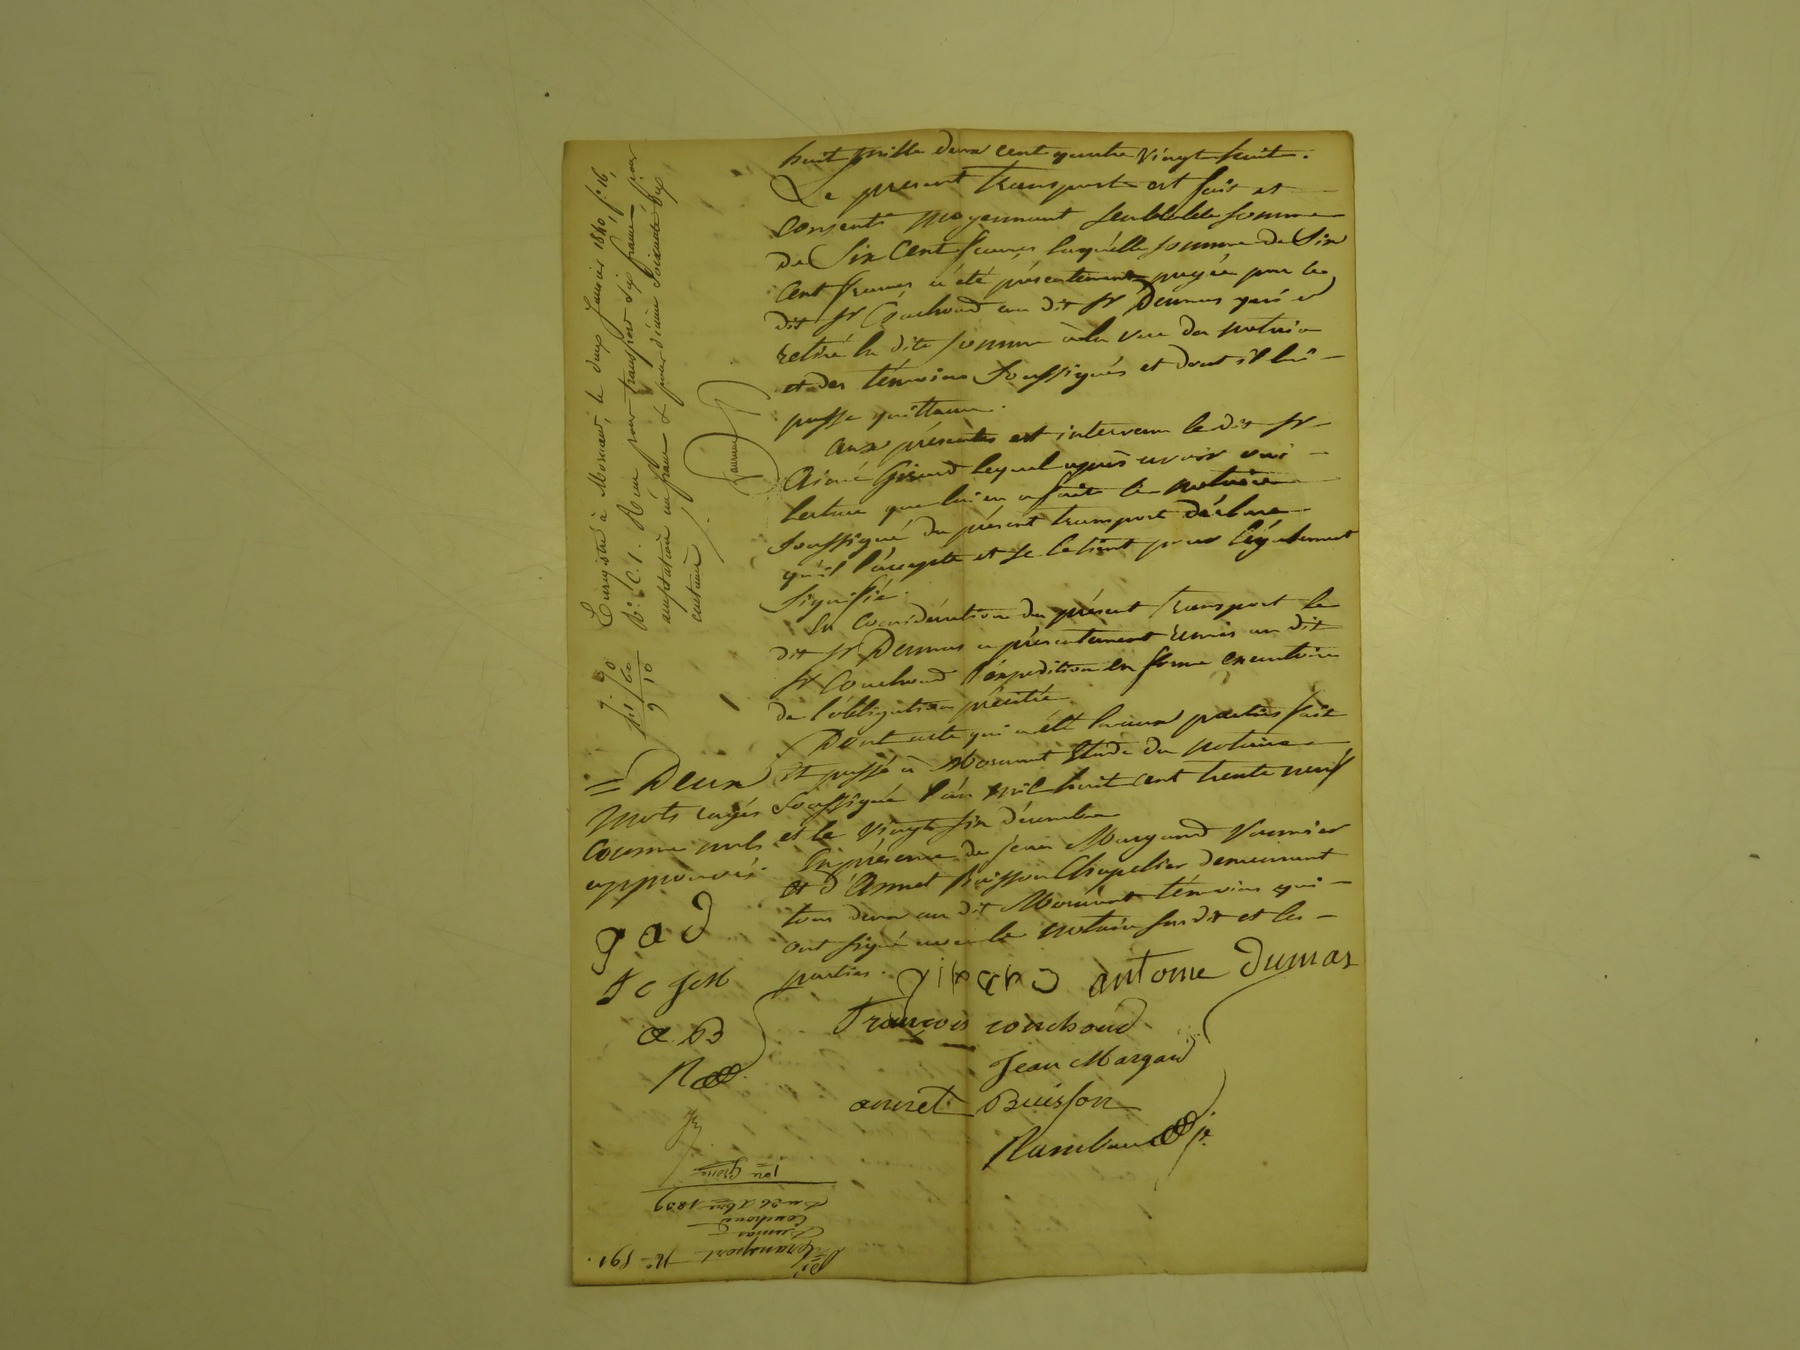 huit mille deux cent quatre vingt huit.
Le present transport est fait et
consenti moyennant semblable somme
de Six Cent francs, laquelle somme de Six
Cent francs a été présentement payée par le
dit Sr Couchoud au dit Sr Dumas qui a
retiré la dite somme à la vue du notaire
et des témoins soussignés et dont il lui
passe quittance.
aux présentes est intervenu le dit Sr
Aimé Girard lequel après avoir oui
lecture que lui en a fait le notaire
soussigné du présent transport déclare
qu'il l'accepte et se le tient pour légalement
signifié.
En Considération du présent transport le
dit Sr Dumas a présentement remis au dit
Sr Couchoud l'expédition en forme exécutoire
de l'obligation précitée
Dont acte qui a été lu aux parties fait
et passé à Mornant Etude du notaire
soussigné l'an mil huit cent trente neuf
et le vingt six décembre
En présence de Jean Margand
et d'Annet Buisson Chapelier demeurant
tous deux au dit Mornant témoins qui
ont signé avec le notaire susdit et les
parties.
= Deux
mots rayés
comme nuls
approuvé.
g a d
f c JcM
a. B
R
girard antoine Dumas
François couchoud
Jean Margand
annet Buisson
Rambaud je
Enregistré à Mornant, le deux Janvier 1840 fo. 16,
Ro. C. 1. Reçu pour transport six francs, pour
acceptation un franc & pour décime soixante dix
centimes /.
7. "
" 70
1 60
9 10
Transport No 591.
Dumas à
Couchoud
Du 26 Xbre 1839
1ere Grosse